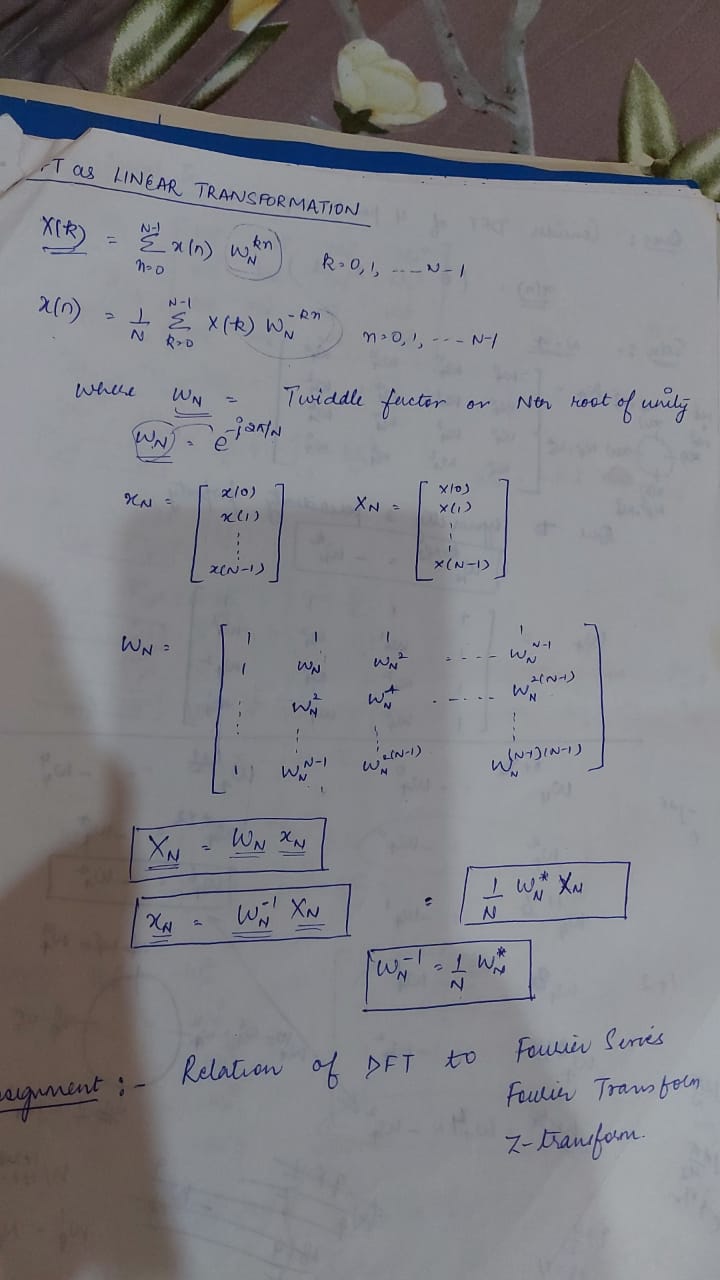 FT as LINEAR TRANSFORMATION
X(k) = N-1 Σ n=0 x(n) W_N^kn k=0,1, ---- N-1
x(n) = 1/N N-1 Σ k=0 X(k) W_N^-kn n=0,1, --- N-1
where W_N = Twiddle factor or Nth root of unity
W_N = e^-j2π/N
x_N = [ x(0) X_N = [ X(0)
x(1) X(1)
⋮ ⋮
x(N-1) ] X(N-1) ]
W_N = [ 1 1 1 1
1 W_N W_N^2 ---- W_N^N-1
⋮ W_N^2 W_N^4 ---- W_N^2(N-1)
⋮ ⋮ ⋮ ⋮
1 W_N^N-1 W_N^2(N-1) W_N^(N-1)(N-1) ]
X_N = W_N x_N
x_N = W_N^-1 X_N = 1/N W_N^* X_N
W_N^-1 = 1/N W_N^*
ssignment :- Relation of DFT to Fourier Series
Fourier Transform
Z-transform.